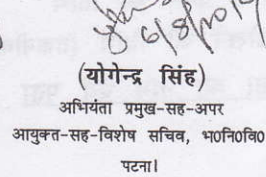 6/8/2019
(योगेन्द्र सिंह)
अभियंता प्रमुख-सह-अपर
आयुक्त-सह-विशेष सचिव, भ०नि०वि०
पटना।